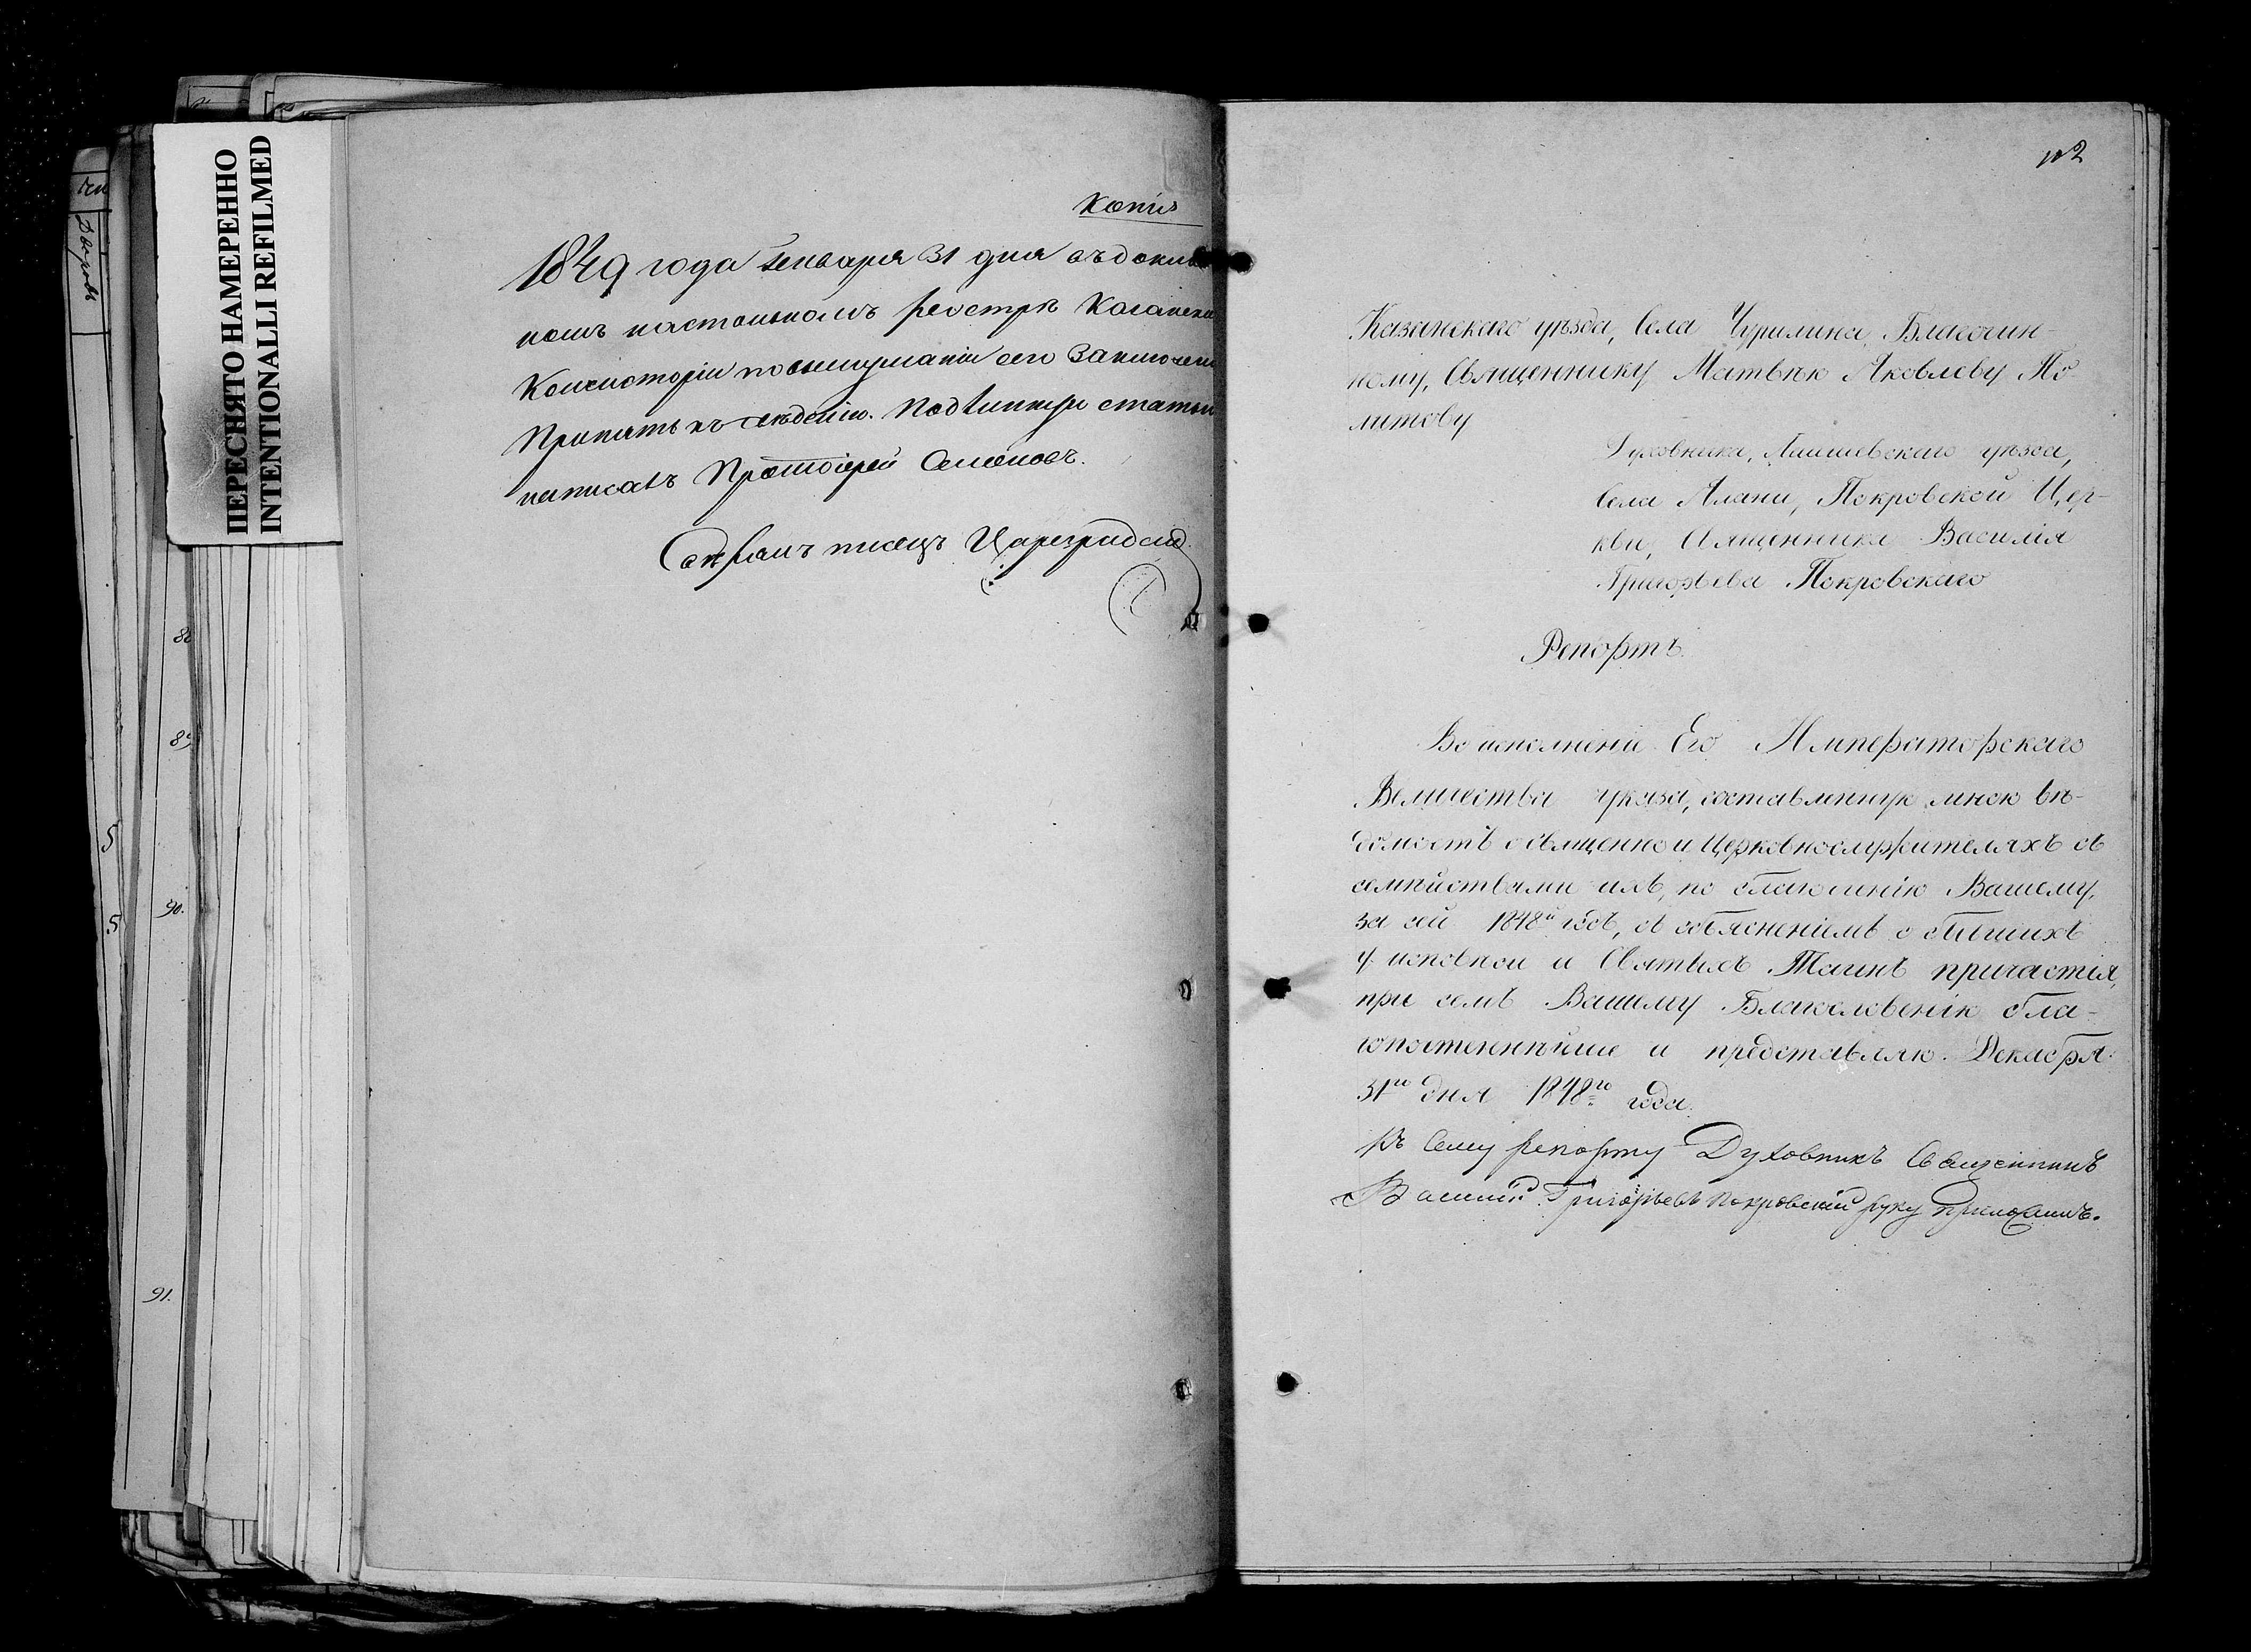 ПЕРЕСНЯТО НАМЕРЕННО
INTENTIONALLI REFILMED
82
89
5
5
90.
91.
Копія
1849 года Генваря 31 дня въ докладномъ
настольномъ реэстрѣ Казанской
Консисторіи по выслушаніи сего Заключено
Принять къ свѣденію. Подлинную статью
написалъ Протоіерей Семеновъ.
писецъ Цареградскій
Казанскаго уѣзда, Села Чурилина, Благочин-
ному, Священнику Матвѣю Яковлеву По-
литову
Духовника, Лаишевскаго уѣзда,
Села Алани, Покровской Цер-
кви, Священника Василія
Григорьева Покровскаго
Репортъ.
Во исполненіи Его Императорскаго
Величества указа, составленную мною вѣ-
домость о Священно и Церковнослужителяхъ съ
семѣйствами ихъ, по благочинію Вашему,
за сей 1848й годъ, съ объясненіемъ о бывшихъ
у исповѣди и Святыхъ Таинъ причастія,
при семъ Вашему Благословенію бла-
гопочтеннѣйше и представляю. Декабря
31го дня 1848го года.
Къ Сему репорту Духовникъ Священникъ
Василій Григорьевъ Покровскій руку приложилъ.